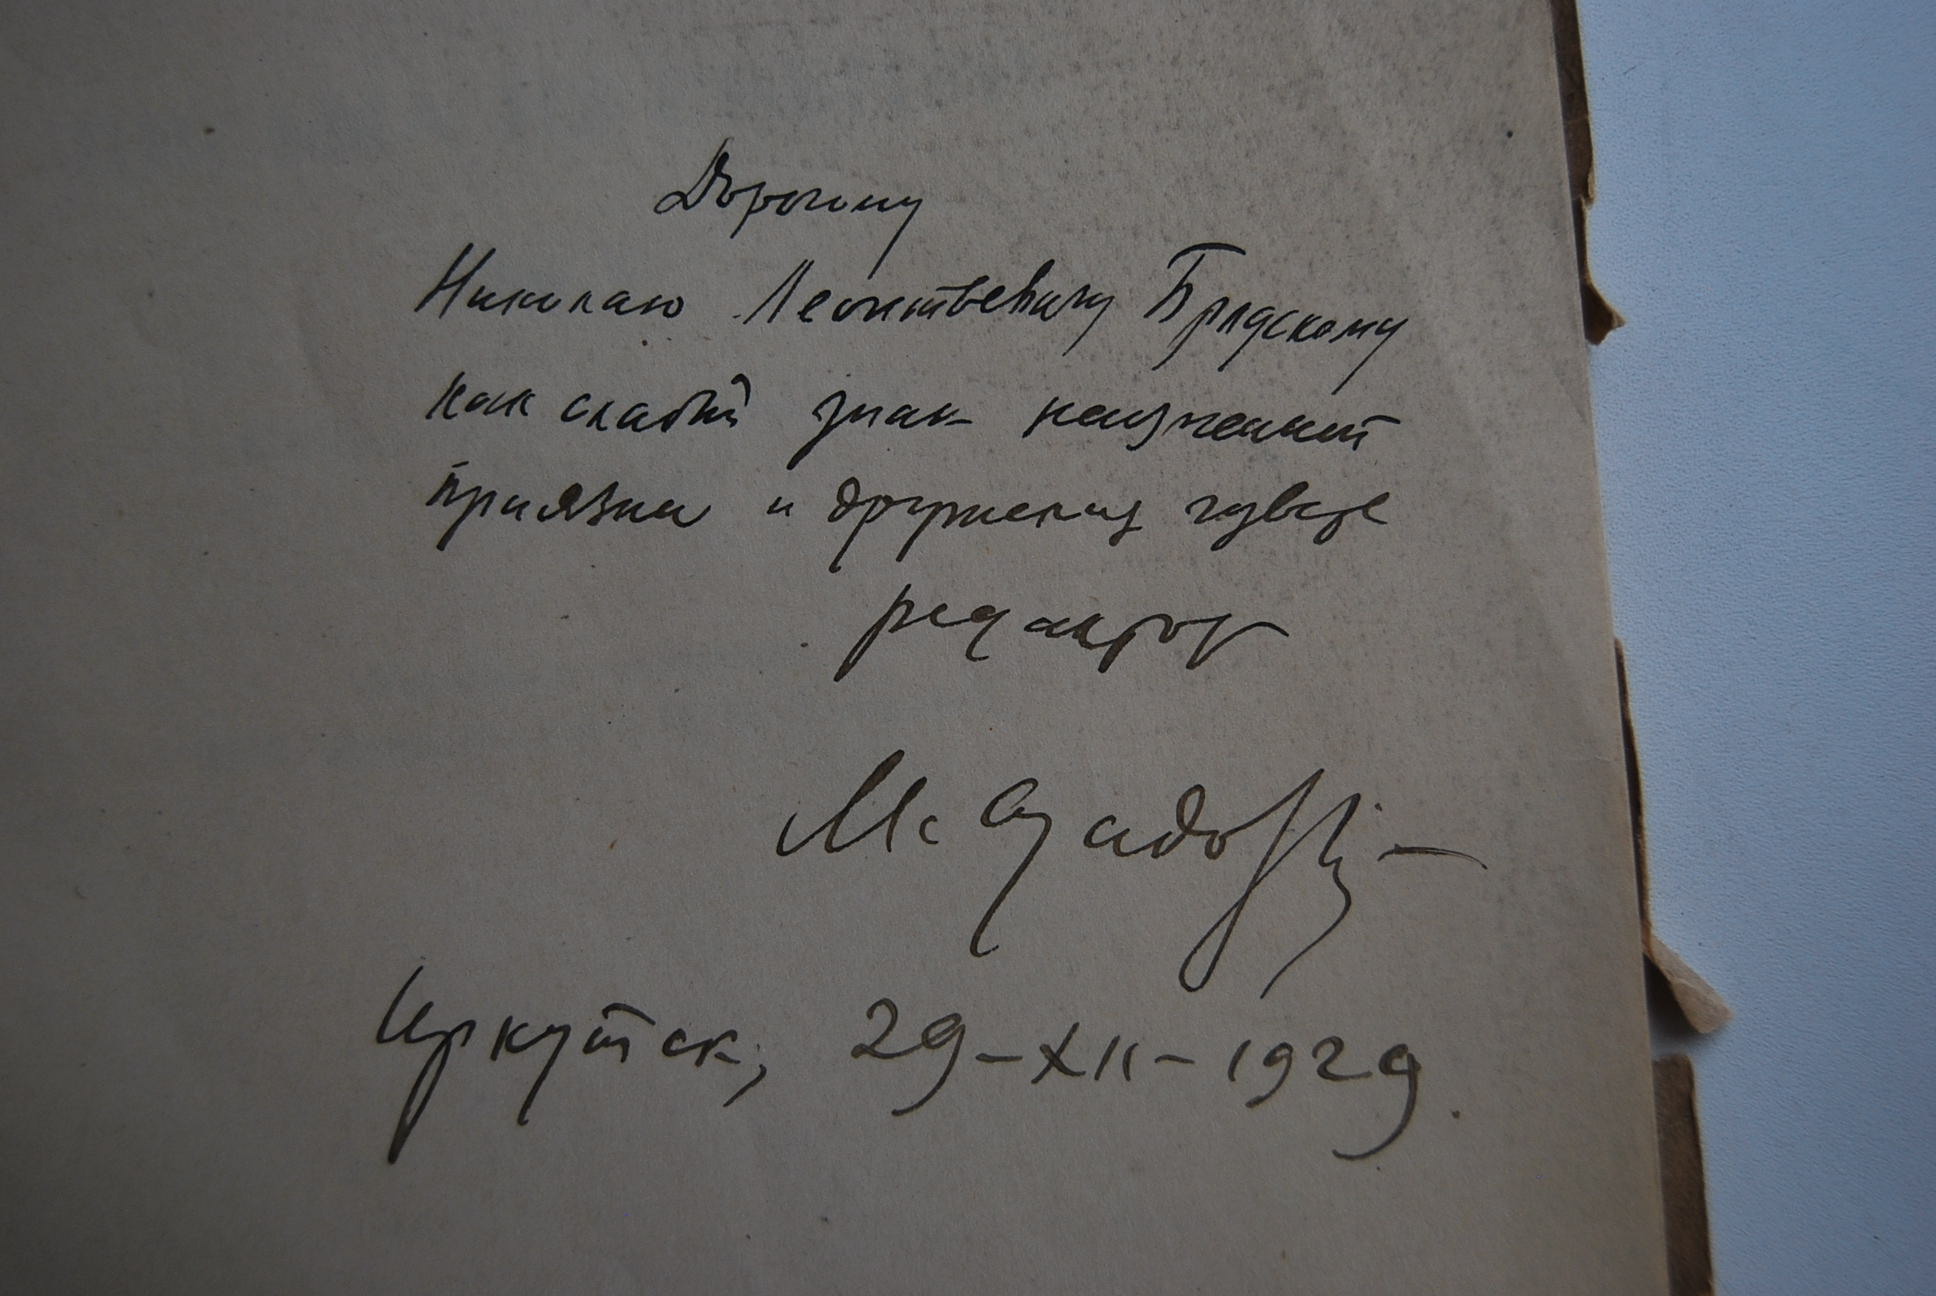 Дорогому
Николаю Леонтьевичу Бродскому
как слабый знак неизменной
приязни и дружеских чувств
редактор
М. Азадовский
Иркутск, 29-XII-1929.